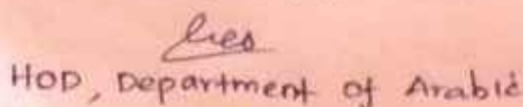 HOD, Department of Arabic